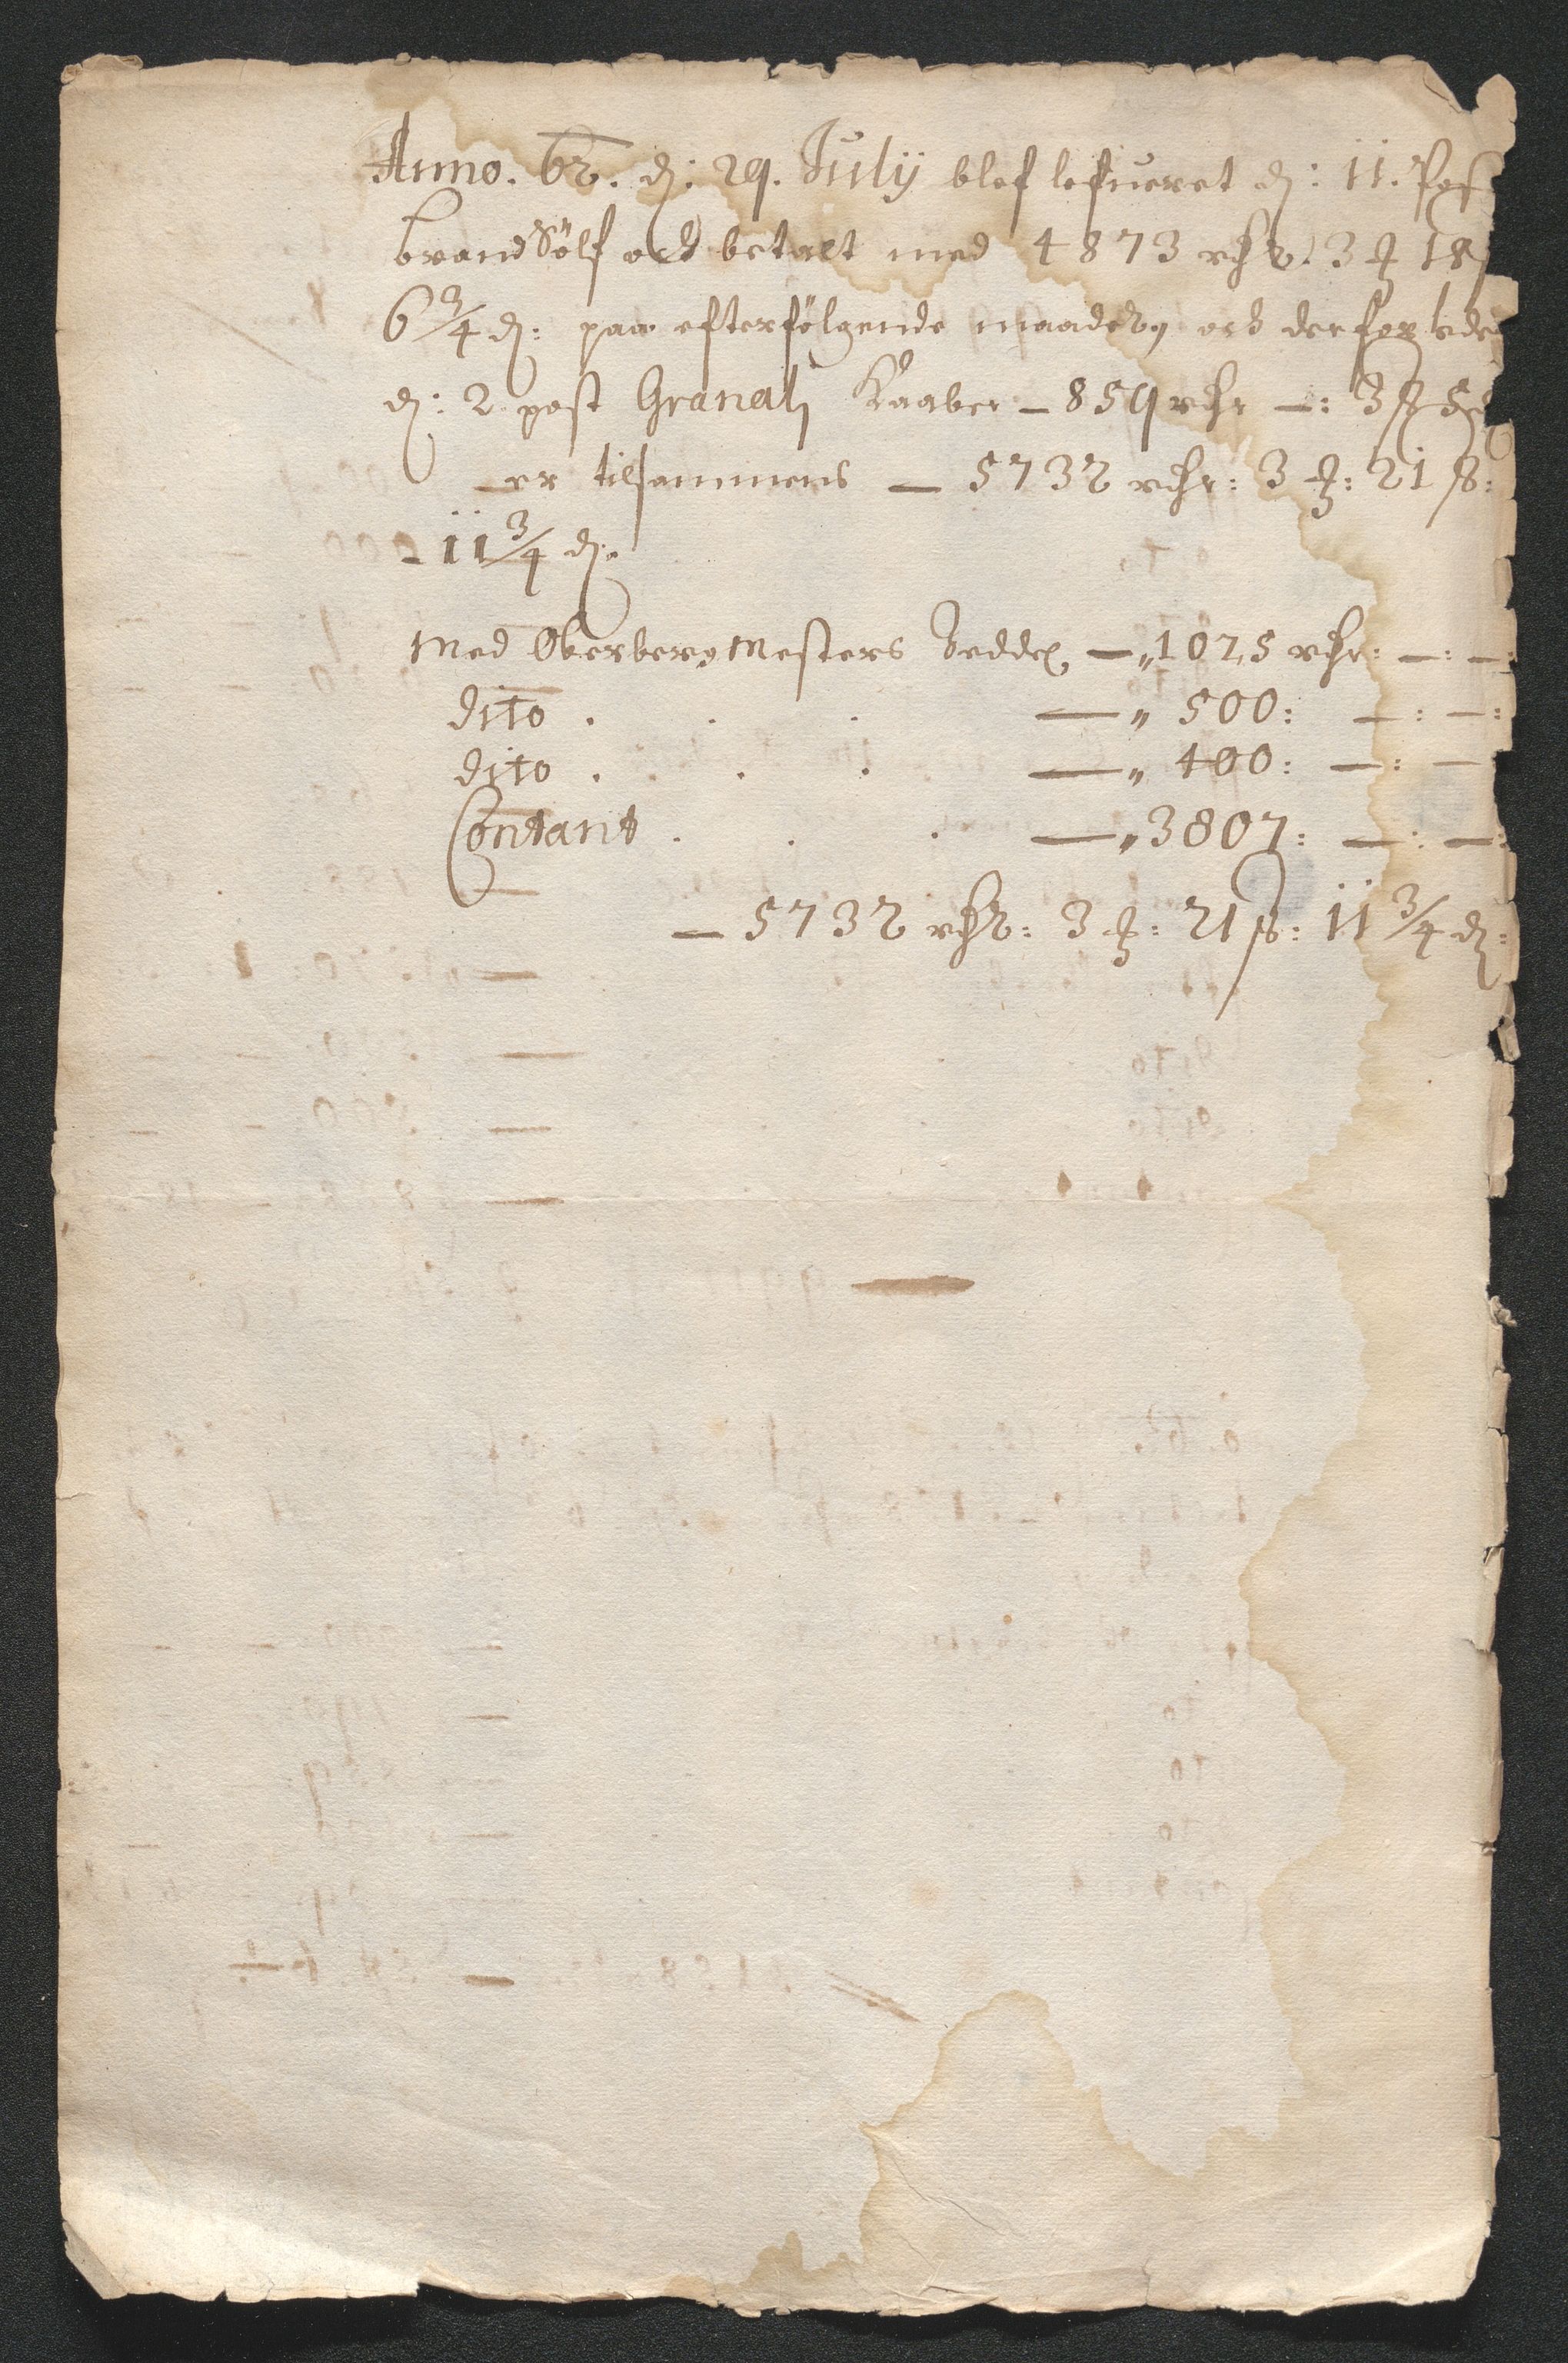 Anno. 62. d: 29. Julÿ blef lefueret d: 11. Post
brand Sølf och betalt med 4873 rdr: 3 ꝥ 18
6 3/4 d: paa efterfølgende maader, och
d: 2 post Granali Kaaber — 859 rdr —: 3 ß 5
— er tilsammens — 5732 rdr: 3 ꝥ: 21 ß:
- 11 3/4 d:
Med Oberbergmesters Seddel — „ 1025 rdr: —: —:
dito . . . — „ 500: —: —:
dito . . . — „ 400: —: —
Contant . . . — „ 3807: —: —:
— 5732 rdr: 3 ꝥ: 21 ß: 11 3/4 d: